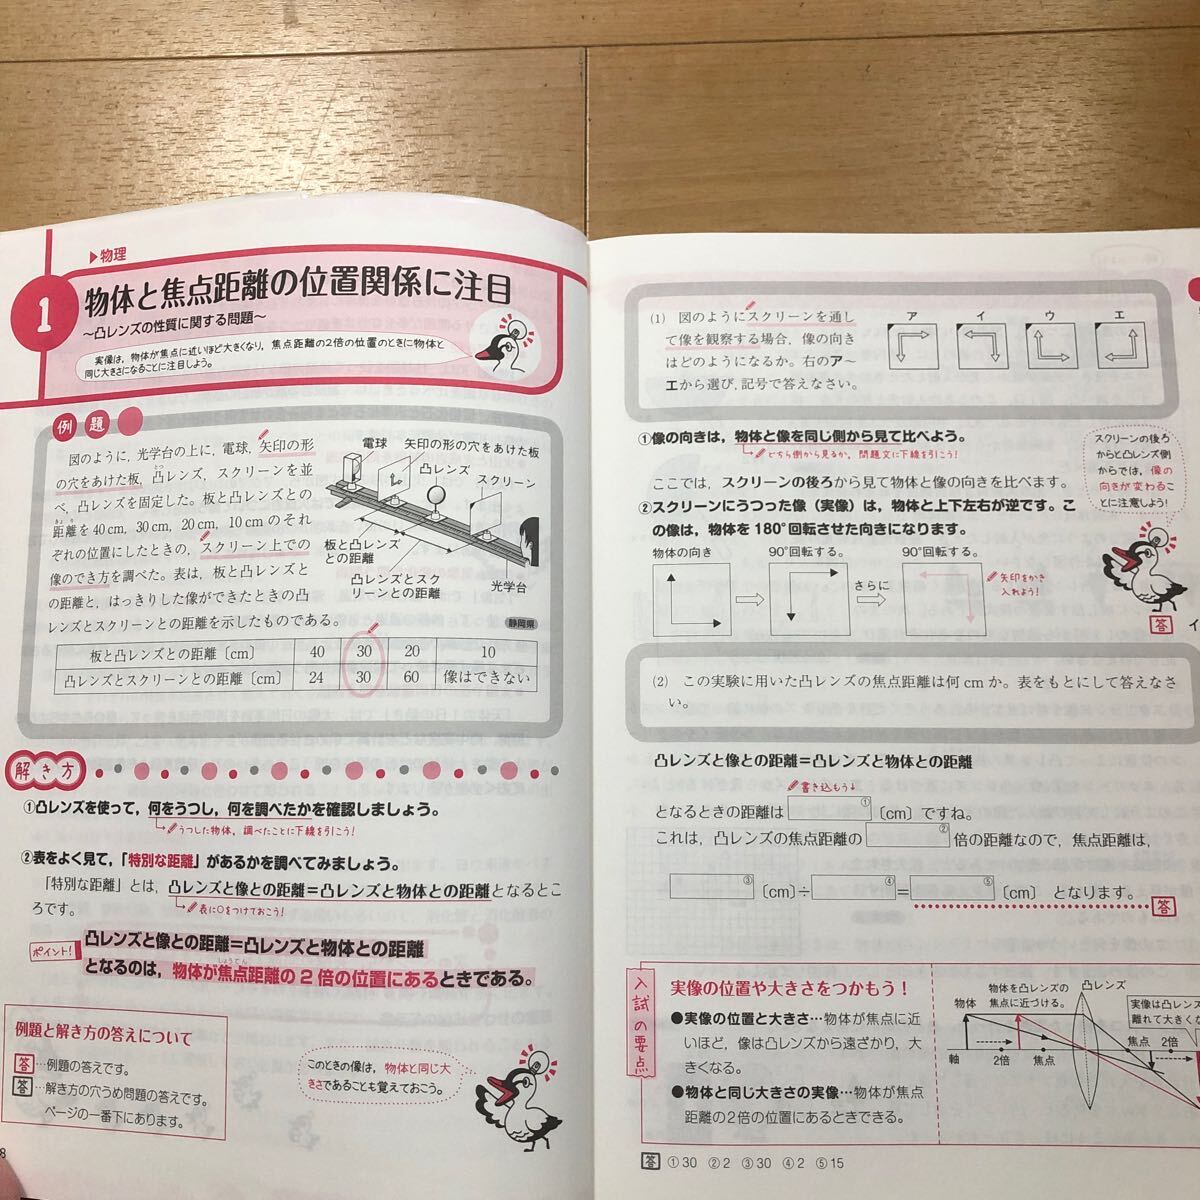 ▶物理
1
物体と焦点距離の位置関係に注目
～凸レンズの性質に関する問題～
実像は，物体が焦点に近いほど大きくなり，焦点距離の2倍の位置のときに物体と
同じ大きさになることに注目しよう。
例題
図のように，光学台の上に，電球，矢印の形
の穴をあけた板，凸レンズ，スクリーンを並
べ，凸レンズを固定した。板と凸レンズとの
距離を40cm，30cm，20cm，10cmのそれ
ぞれの位置にしたときの，スクリーン上での
像のでき方を調べた。表は，板と凸レンズと
の距離と，はっきりした像ができたときの凸
レンズとスクリーンとの距離を示したものである。
静岡県
電球
矢印の形の穴をあけた板
凸レンズ
スクリーン
板と凸レンズ
との距離
凸レンズとスク
リーンとの距離
光学台
板と凸レンズとの距離〔cm〕 40 30 20 10
凸レンズとスクリーンとの距離〔cm〕 24 30 60 像はできない
解き方
①凸レンズを使って，何をうつし，何を調べたかを確認しましょう。
うつした物体，調べたことに下線を引こう！
②表をよく見て，「特別な距離」があるかを調べてみましょう。
「特別な距離」とは，凸レンズと像との距離＝凸レンズと物体との距離となるとこ
ろです。
表に○をつけておこう！
ポイント！
凸レンズと像との距離＝凸レンズと物体との距離
となるのは，物体が焦点距離の2倍の位置にあるときである。
しょうてん
例題と解き方の答えについて
答…例題の答えです。
答…解き方の穴うめ問題の答えです。
ページの一番下にあります。
このときの像は，物体と同じ大
きさであることも覚えておこう。
8
(1) 図のようにスクリーンを通し
て像を観察する場合，像の向き
はどのようになるか。右のア～
エから選び，記号で答えなさい。
ア イ ウ エ
①像の向きは，物体と像を同じ側から見て比べよう。
どちら側から見るか，問題文に下線を引こう！
ここでは，スクリーンの後ろから見て物体と像の向きを比べます。
②スクリーンにうつった像（実像）は，物体と上下左右が逆です。こ
の像は，物体を180°回転させた向きになります。
スクリーンの後ろ
からと凸レンズ側
からでは，像の
向きが変わるこ
とに注意しよう！
物体の向き
90°回転する。
さらに
90°回転する。
矢印をかき
入れよう！
答 イ
(2) この実験に用いた凸レンズの焦点距離は何cmか。表をもとにして答えなさ
い。
凸レンズと像との距離＝凸レンズと物体との距離
書き込もう↓
となるときの距離は ① 〔cm〕ですね。
これは，凸レンズの焦点距離の ② 倍の距離なので，焦点距離は，
③ 〔cm〕÷ ④ ＝ ⑤ 〔cm〕 となります。
答
入試の要点
実像の位置や大きさをつかもう！
●実像の位置と大きさ…物体が焦点に近
いほど，像は凸レンズから遠ざかり，大
きくなる。
●物体と同じ大きさの実像…物体が焦点
距離の2倍の位置にあるときできる。
物体
物体を凸レンズの
焦点に近づける。
凸レンズ
実像は凸レン
離れて大きくな
軸
2倍
焦点
焦点
2倍
答 ①30 ②2 ③30 ④2 ⑤15